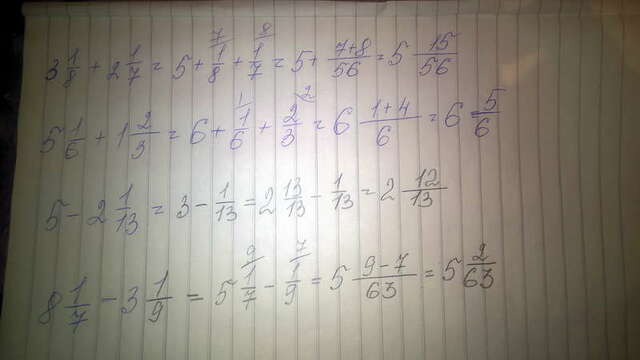 3 1/8 + 2 1/7 = 5 + 1/8 (7) + 1/7 (8) = 5 + (7+8)/56 = 5 15/56
5 1/6 + 1 2/3 = 6 + 1/6 (1) + 2/3 (2) = 6 (1+4)/6 = 6 5/6
5 - 2 1/13 = 3 - 1/13 = 2 13/13 - 1/13 = 2 12/13
8 1/7 - 3 1/9 = 5 1/7 (9) - 1/9 (7) = 5 (9-7)/63 = 5 2/63